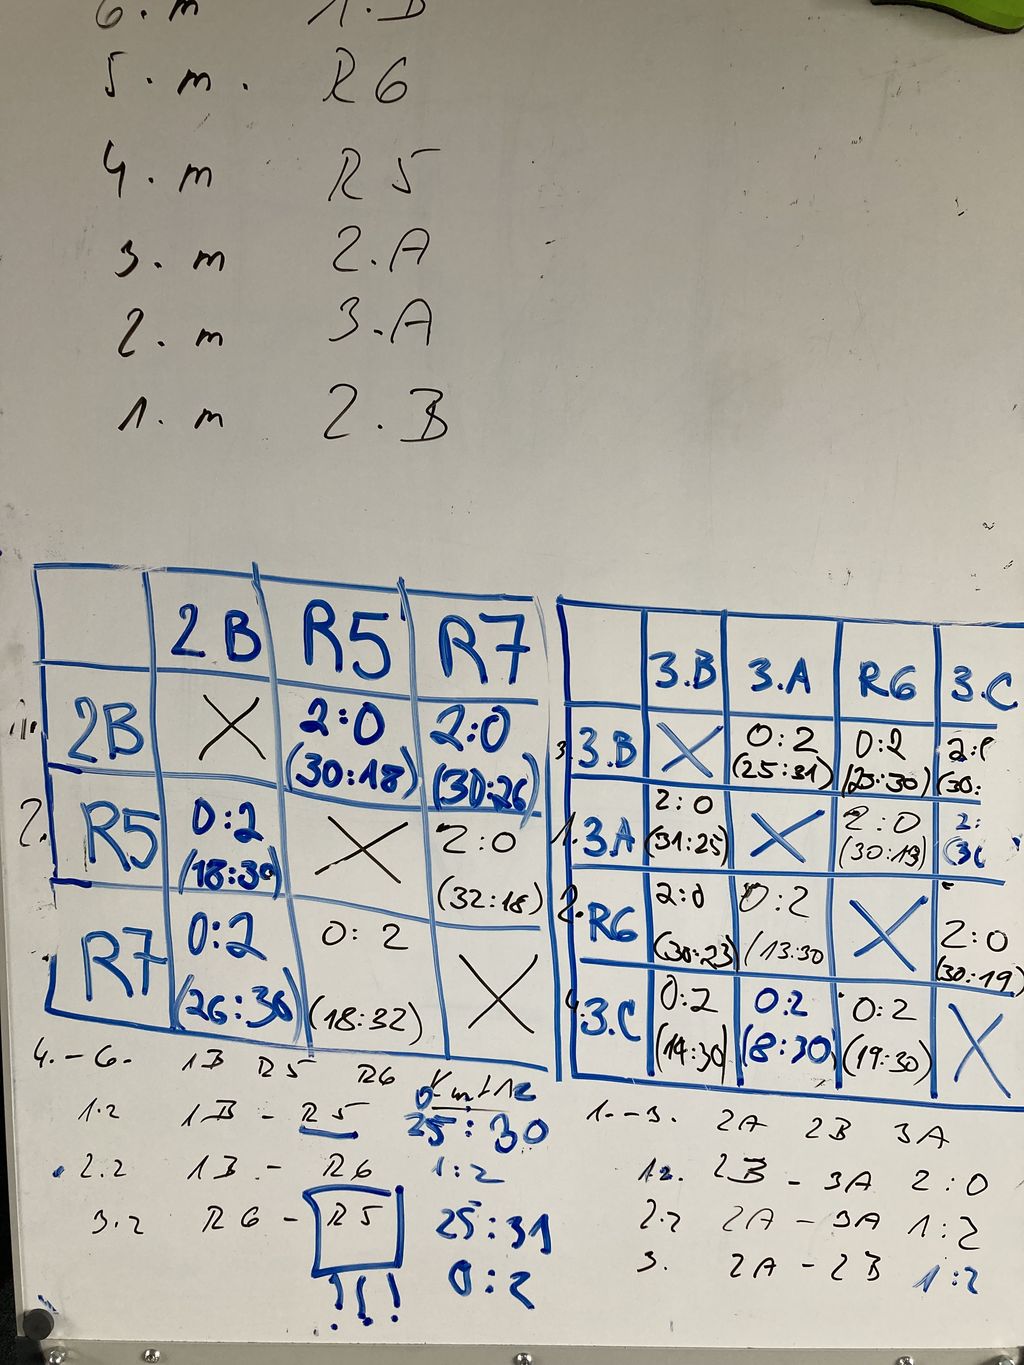 6. m 1. B
5. m. R6
4. m R5
3. m 2.A
2. m 3.A
1. m 2.B
2B R5 R7
1. 2B X 2:0 (30:18) 2:0 (30:26)
2. R5 0:2 (18:30) X 2:0 (32:18)
R7 0:2 (26:30) 0:2 (18:32) X
3.B 3.A R6 3.C
3. 3.B X 0:2 (25:31) 0:2 (25:30) (30:
1. 3A 2:0 (31:25) X 2:0 (30:13) 2:
2. R6 2:0 (30:23) 0:2 (13:30 X 2:0 (30:19)
4. 3.C 0:2 (14:30) 0:2 (8:30) 0:2 (19:30) X
4.-6. 1B R5 R6
1.z 1B - R5 25:30
2.z 1B - R6 1:2
3.z R6 - R5 25:31
0:2
!!!
1.-3. 2A 2B 3A
1z. 2B - 3A 2:0
2.z 2A - 3A 1:2
3. 2A - 2B 1:2